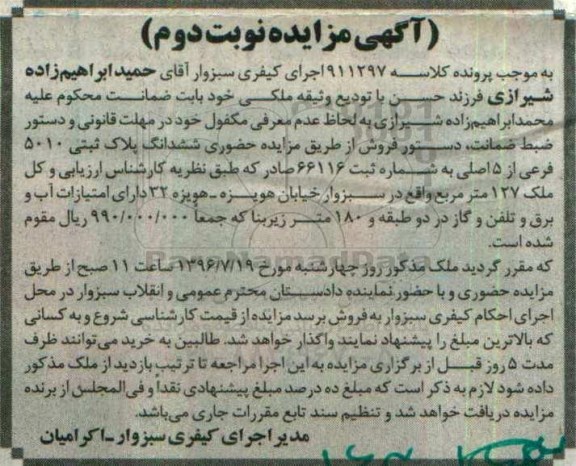 (آگهی مزایده نوبت دوم)
به موجب پرونده کلاسه ۹۱۱۲۹۷ اجرای کیفری سبزوار آقای حمید ابراهیم‌زاده
شیرازی فرزند حسن با تودیع وثیقه ملکی خود بابت ضمانت محکوم علیه
محمد ابراهیم‌زاده شیرازی به لحاظ عدم معرفی مکفول خود در مهلت قانونی و دستور
ضبط ضمانت، دستور فروش از طریق مزایده حضوری ششدانگ پلاک ثبتی ۵۰۱۰
فرعی از ۵ اصلی به شماره ثبت ۶۶۱۱۶ صادر که طبق نظریه کارشناس ارزیابی و کل
ملک ۱۲۷ متر مربع واقع در سبزوار خیابان هویزه - هویزه ۳۲ دارای امتیازات آب و
برق و تلفن و گاز در دو طبقه و ۱۸۰ متر زیربنا که جمعاً ۹۹۰/۰۰۰/۰۰۰ ریال مقوم
شده است.
که مقرر گردید ملک مذکور روز چهارشنبه مورخ ۱۳۹۶/۷/۱۹ ساعت ۱۱ صبح از طریق
مزایده حضوری و با حضور نماینده دادستان محترم عمومی و انقلاب سبزوار در محل
اجرای احکام کیفری سبزوار به فروش برسد مزایده از قیمت کارشناسی شروع و به کسانی
که بالاترین مبلغ را پیشنهاد نمایند واگذار خواهد شد. طالبین به خرید می‌توانند ظرف
مدت ۵ روز قبل از برگزاری مزایده به این اجرا مراجعه تا ترتیب بازدید از ملک مذکور
داده شود لازم به ذکر است که مبلغ ده درصد مبلغ پیشنهادی نقدا و فی‌المجلس از برنده
مزایده دریافت خواهد شد و تنظیم سند تابع مقررات جاری می‌باشد.
مدیر اجرای کیفری سبزوار - اکرامیان